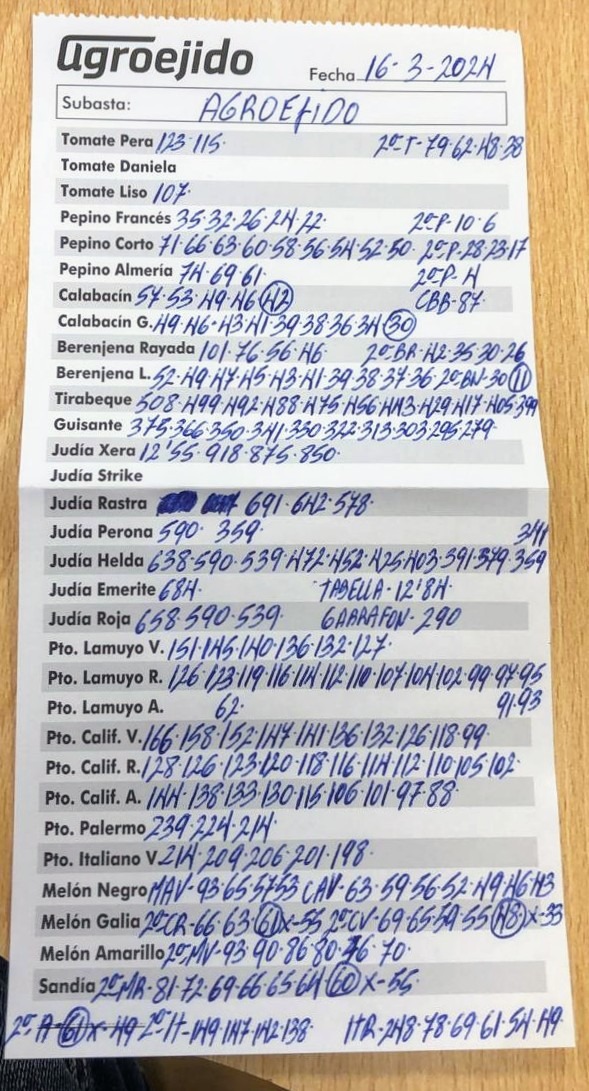 agroejido
Fecha 16-3-2024
Subasta: AGROEJIDO
Tomate Pera 123·115· 2ª-T-79·62·48·38
Tomate Daniela
Tomate Liso 107·
Pepino Francés 35·32·26·24·22· 2ª-P-10·6
Pepino Corto 71·66·63·60·58·56·54·52·50· 2ª-P-28·23·17
Pepino Almería 74·69·61· 2ª-P-4
Calabacín 57·53·49·46 42 CBB-87·
Calabacín G. 49·46·43·41·39·38·36·34 30
Berenjena Rayada 101·76·56·46· 2ª-BR-42·35·30·26
Berenjena L. 52·49·47·45·43·41·39·38·37·36·2ª-BN-30 11
Tirabeque 508·499·492·488·475·456·443·429·417·405·399
Guisante 375·366·350·341·330·322·313·303·295·279·
Judía Xera 12'55·918·875·850·
Judía Strike
Judía Rastra 691·642·578·
Judía Perona 590· 359· 341
Judía Helda 638·590·539·472·452·425·403·391·379·359
Judía Emerite 684· TABELLA-12'84·
Judía Roja 658·590·539· GARRAFON-290
Pto. Lamuyo V. 151·145·140·136·132·127·
Pto. Lamuyo R. 126·123·119·116·114·112·110·107·104·102·99·97·95
Pto. Lamuyo A. 62· 91·93
Pto. Calif. V. 166·158·152·147·141·136·132·126·118·99·
Pto. Calif. R. 128·126·123·120·118·116·114·112·110·105·102·
Pto. Calif. A. 144·138·133·130·115·106·101·97·88·
Pto. Palermo 239·224·214·
Pto. Italiano V. 214·209·206·201·198·
Melón Negro MAV-93·65·57·53 CAV-63·59·56·52·49·46·43
Melón Galia 2ª-CR-66·63 61 X-55 2ª-CV-69·65·59·55 48 X-33
Melón Amarillo 2ª-MV-93·90·86·80·76·70·
Sandía 2ª-MR-81·72·69·66·65·64 60 X-55·
2ª-A- 61 X-49 2ª-It-149·147·142·138· ItR-248·78·69·61·54·49·